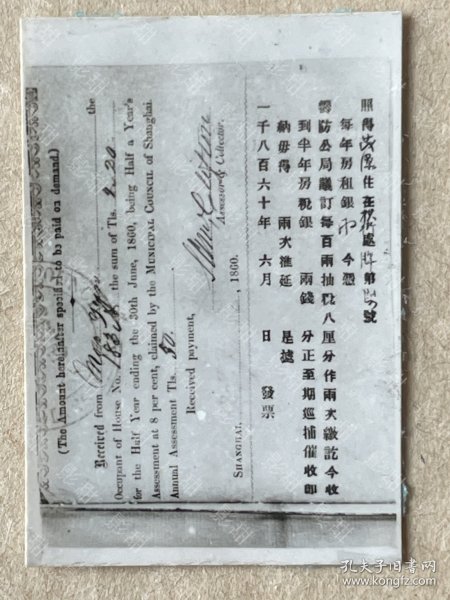 (The Amount hereinafter specified to be paid on demand.)
Received from the
Occupant of House No. the sum of Tls. 2.20.
for the Half Year ending the 30th June, 1860, being Half a Year's
Assessment at 8 per cent, claimed by the MUNICIPAL COUNCIL of Shanghai.
Annual Assessment Tls. 50.
Received payment,
Assessor & Collector.
SHANGHAI, , 1860.
照得 住在 處 第 號
每年房租銀 今憑
防公局議訂每百兩抽 八厘分作兩次繳訖今收
到半年房稅銀 兩錢 分正至期巡捕催收即
納毋得 兩次推延 是據
一千八百六十年 六月 日 發票
孔夫子旧书网
www.kongfz.com